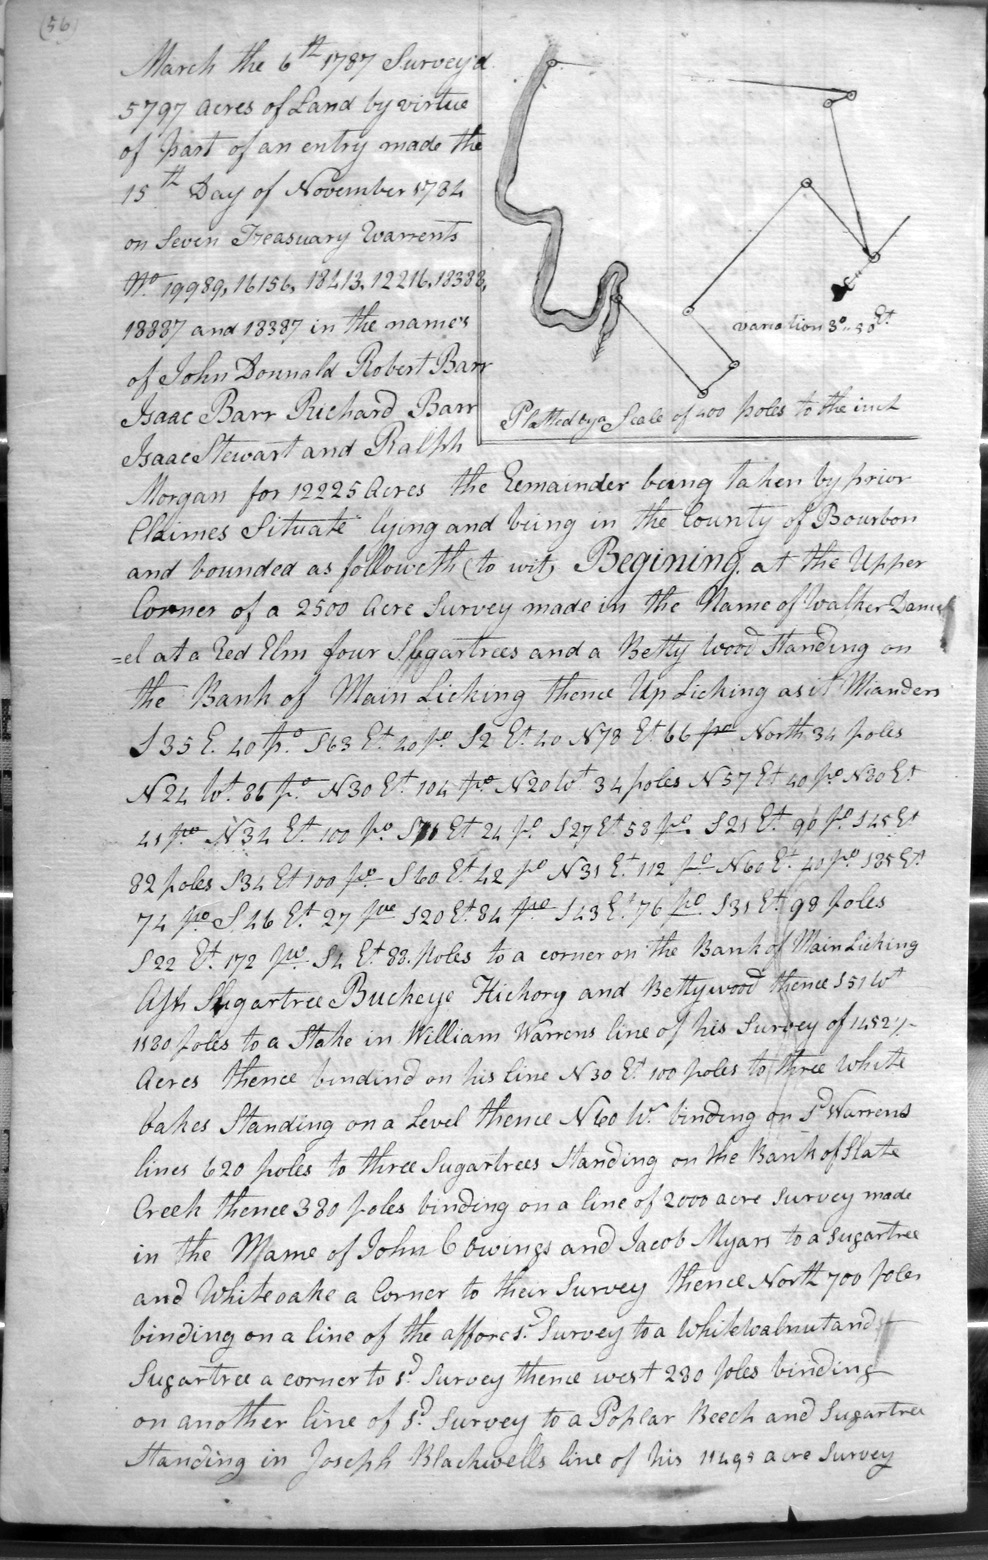 (56)
March the 6th 1787 Survey'd
5797 acres of Land by virtue
of part of an entry made the
15th Day of November 1784
on Seven Treasuary Warrents
No 19989, 16156, 18413, 12216, 18388,
18887 and 18387 in the names
of John Donnald Robert Barr
Isaac Barr Richard Barr
Isaac Stewart and Ralph
variation 3°..50' Et
Platted by a Scale of 400 poles to the inch
Morgan for 12225 Acres the Remainder being taken by prior
Claimes Situate lying and being in the County of Bourbon
and bounded as followeth (to wit) Begining at the Upper
Corner of a 2500 Acre Survey made in the Name of Walker Dani
=el at a Red Elm four Sugartrees and a Betty wood Standing on
the Bank of Main Licking thence Up Licking as it Mianders
S35 E. 40 po S63 Et 40 po S2 Et 40 N78 Et 66 po North 34 poles
N24 Wt 86 po N30 Et 104 po N20 Wt 34 poles N57 Et 40 po N30 Et
45 po N34 Et 100 po Et 24 po S27 Et 58 po S21 Et 90 po S45 Et
82 poles S34 Et 100 po S60 Et 42 po N31 Et 112 po N60 Et 40 po S85 Et
74 po S46 Et 27 poe S20 Et 84 po S43 Et 76 po S31 Et 98 poles
S22 Et 172 po S4 Et 88 poles to a corner on the Bank of Main Licking
Ash Sugartree Buckeye Hickory and Bettywood thence S51 Wt
1180 poles to a Stake in William Warrens line of his Survey of 14527
Acres thence bindind on his line N30 Et 100 poles to three White
oakes Standing on a Level thence N60 Wt binding on sd Warrens
lines 620 poles to three Sugartrees Standing on the Bank of Slate
Creek thence 380 poles binding on a line of 2000 acre Survey made
in the Mame of John C Owings and Jacob Myars to a Sugartree
and White oake a Corner to their Survey thence North 700 poles
binding on a line of the afforesd Survey to a White Walnut and
Sugartree a corner to sd Survey thence west 280 poles binding
on another line of sd Survey to a Poplar Beech and Sugartree
Standing in Joseph Blackwells line of his 11495 acre Survey